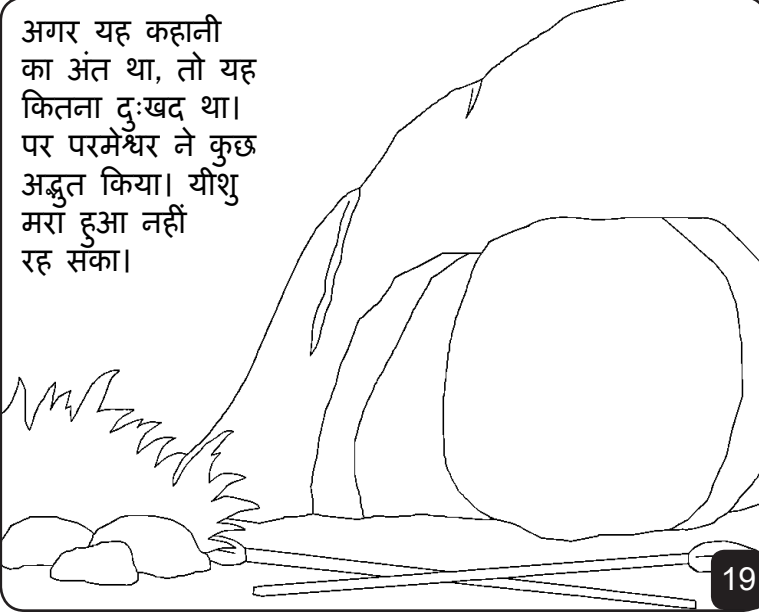 अगर यह कहानी
का अंत था, तो यह
कितना दुःखद था।
पर परमेश्वर ने कुछ
अद्भुत किया। यीशु
मरा हुआ नहीं
रह सका।
19